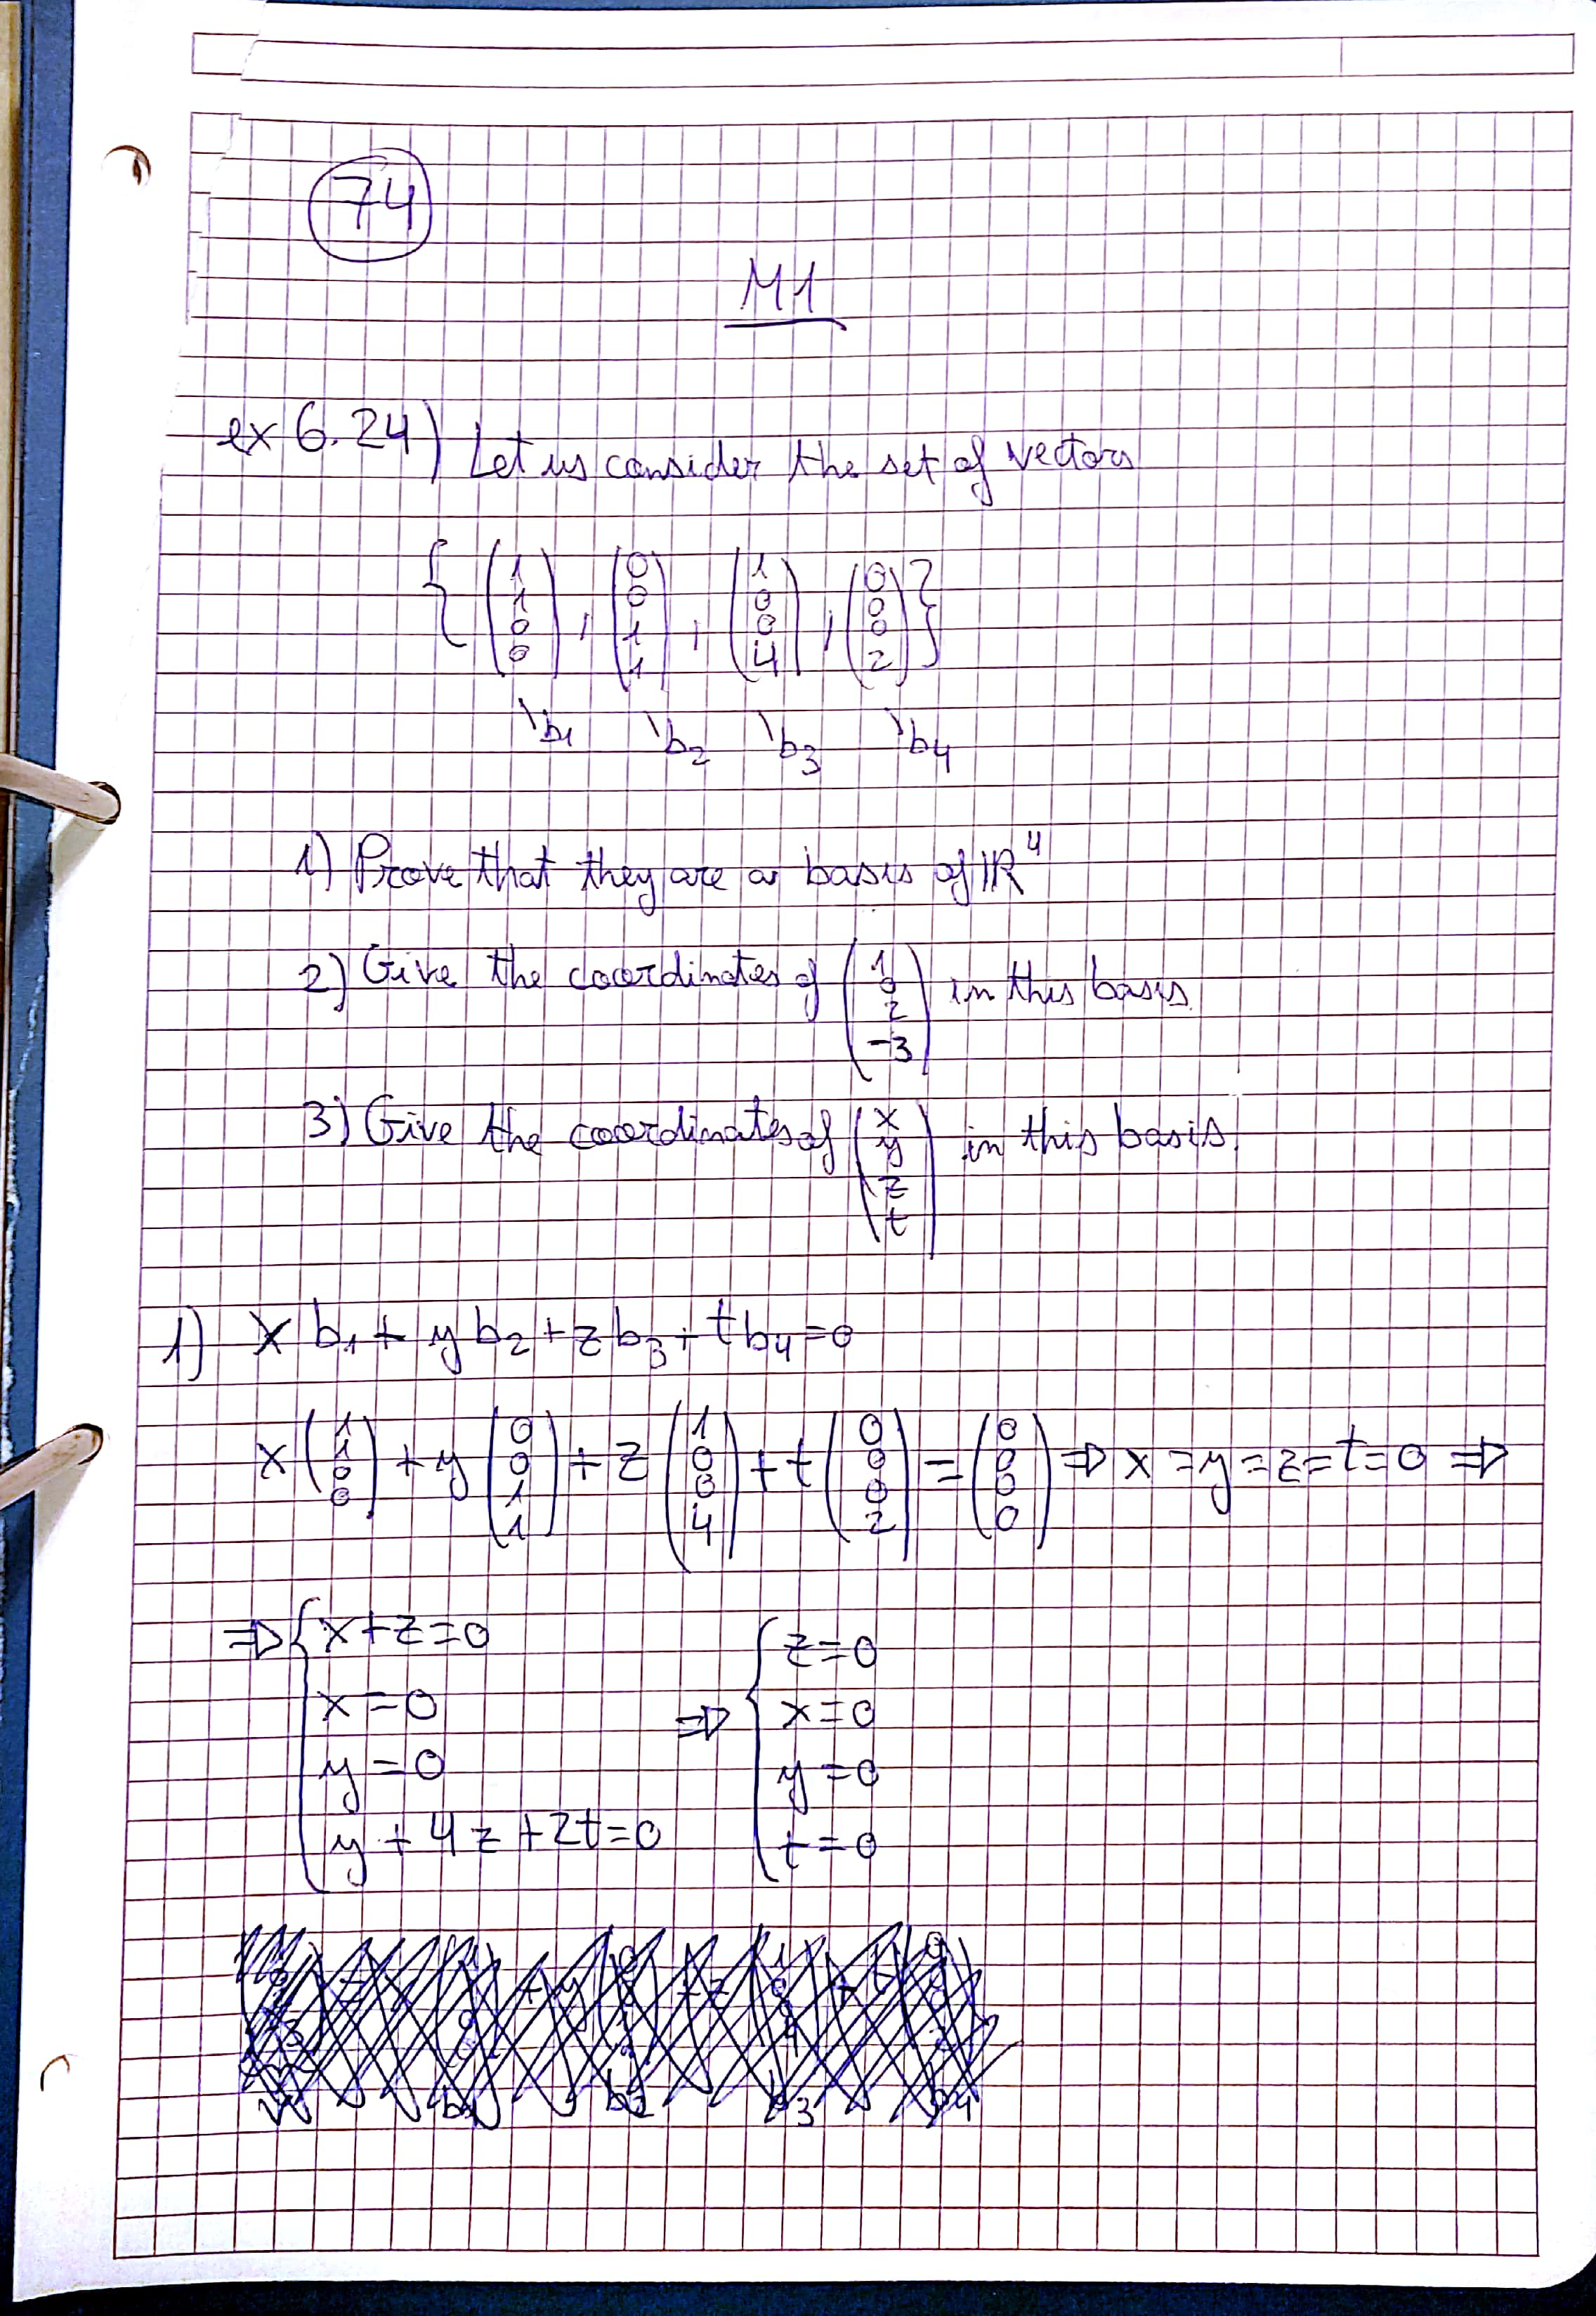 74
M1
ex 6.24) Let us consider the set of vectors
{ (1 1 0 0) , (0 0 1 1) , (1 0 0 4) , (0 0 0 2) }
b1 b2 b3 b4
1) Prove that they are a basis of ℝ⁴
2) Give the coordinates of (1 0 2 -3) in this basis
3) Give the coordinates of (x y z t) in this basis.
1) x b1 + y b2 + z b3 + t b4 = 0
x (1 1 0 0) + y (0 0 1 1) + z (1 0 0 4) + t (0 0 0 2) = (0 0 0 0) ⇒ x = y = z = t = 0 ⇒
⇒ { x + z = 0 ⇒ { z = 0
x = 0 x = 0
y = 0 y = 0
y + 4z + 2t = 0 t = 0